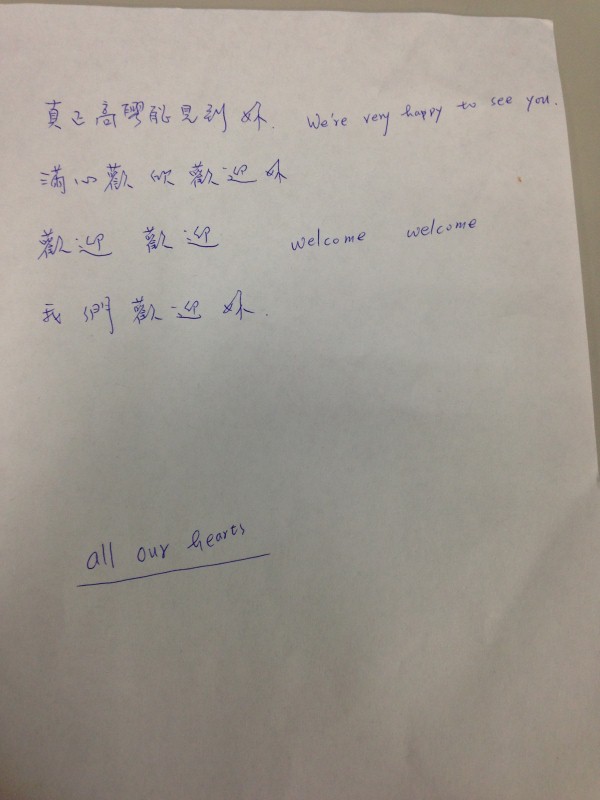 真正高興能見到妳. We're very happy to see you.
滿心歡欣歡迎妳
歡迎 歡迎 welcome welcome
我們歡迎妳.
all our hearts